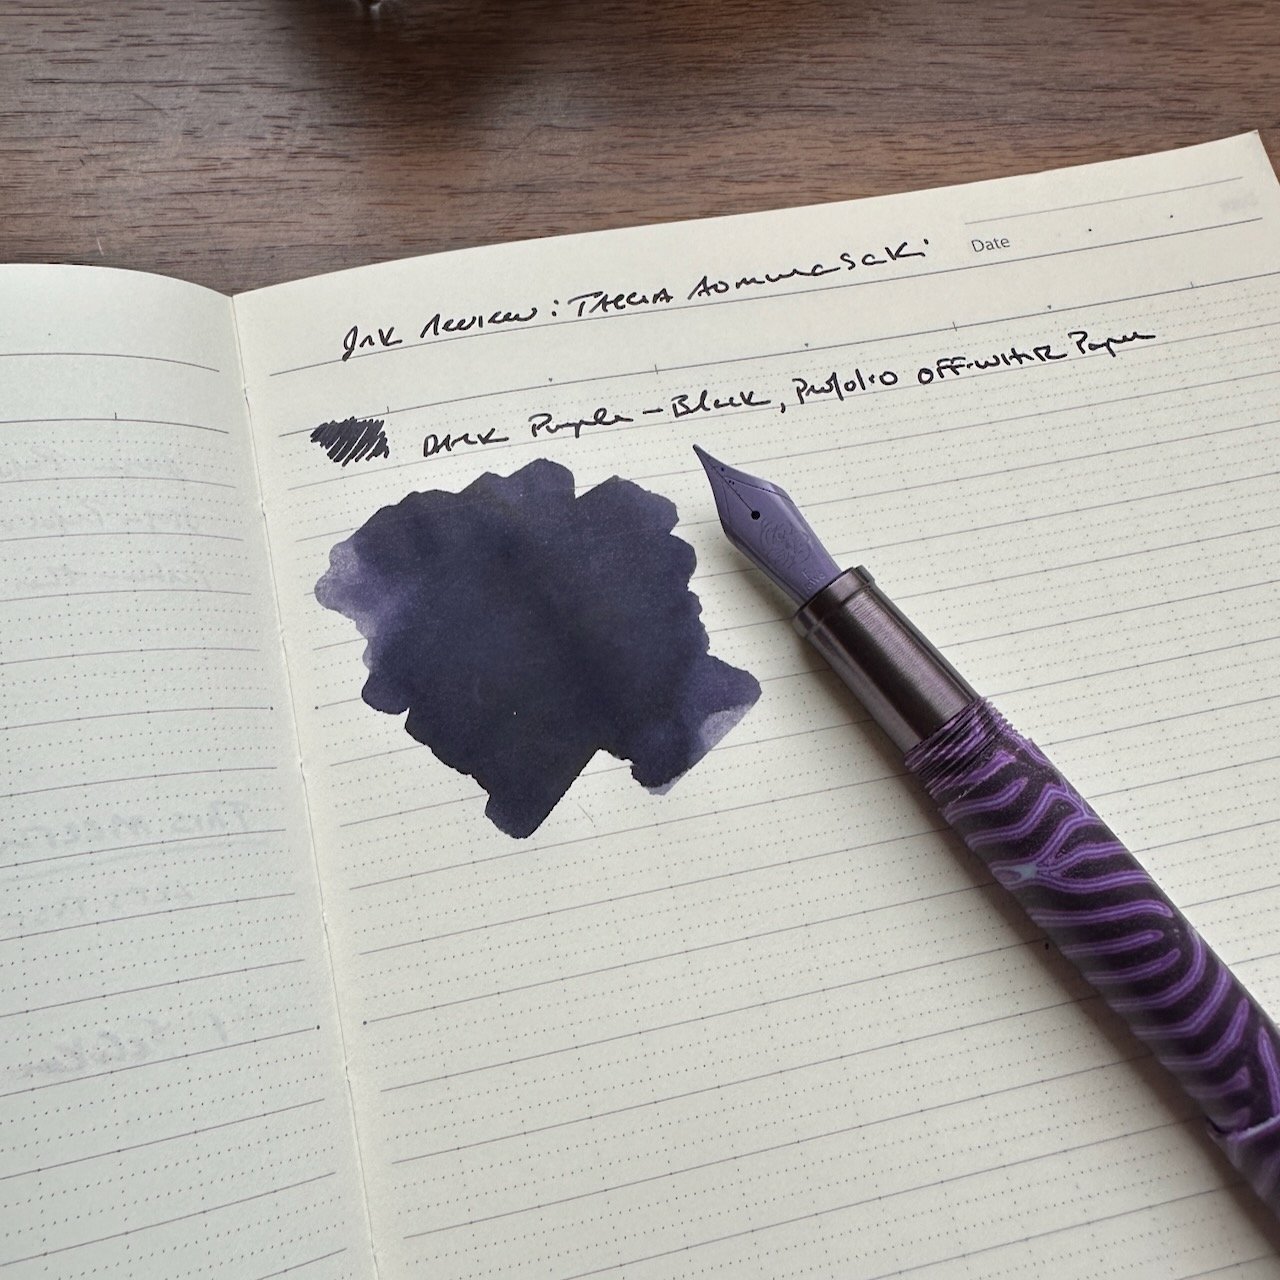 Date
Ink Review: Taccia Aomurasaki
Dark Purple-Black, Profolio off-white Paper
THIS